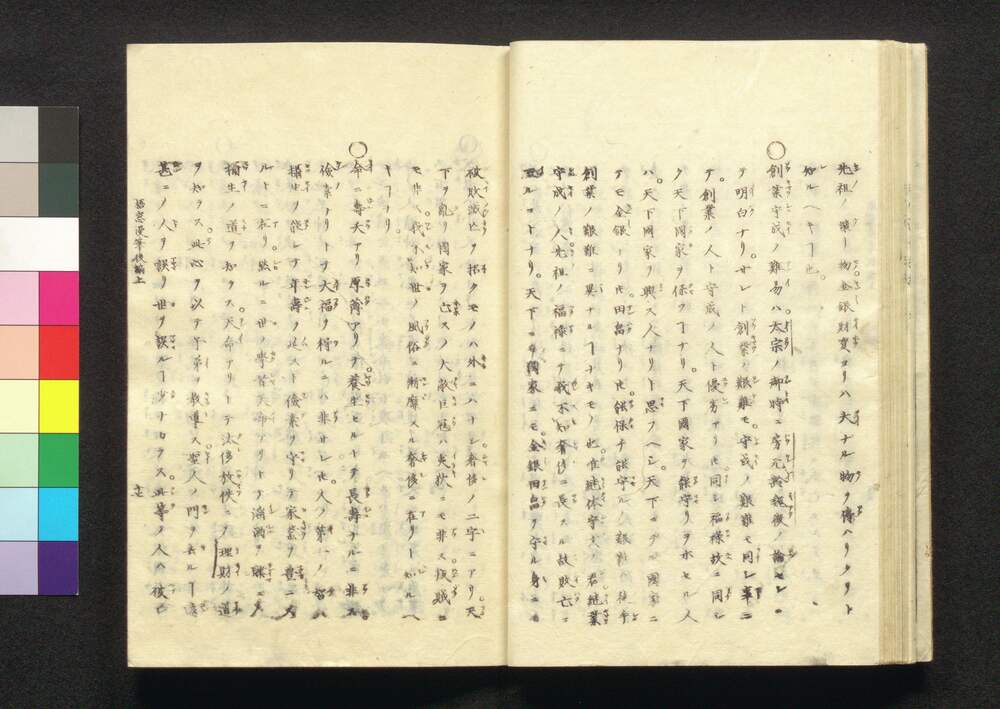 先祖ノ積シ物金銀財寶ヨリハ大ナル物ヲ傳ハリタリト
知ルヘキヿ也。
○創業守成ノ難易ハ太宗ノ御時ニ房元齢魏徴ノ論セシヿ
ニテ明白ナリ。サレト創業ノ艱難モ守成ノ艱難モ同シ
ヿ。創業ノ人ト守成ノ人ト優劣アリ圧同シ福禄故ニ同シ
ク天下國家ヲ保ツヿナリ。天下國家ヲ保守リヲホセル人
ハ天下國家ヲ興ス人ナリト思フヘシ。天下
ニテモ金銀ナリ圧田畠ナリ圧能保チ能守ルノ艱難
創業ノ艱難ニ異ナルヿナキモノ也。
守成ノ人先祖ノ福禄ニテ我不知奢侈ニ長スル故敗亡ニ
至ルコトナリ。天下ニモ國家ニモ金銀田畠ヲ守ル身ニモ
被敗滅亡ヲ招クモノハ外ニハナシ奢侈ノ二字ニアリ。天
下ヲ亂リ國家ヲ亡スノ大敵巨冦ハ夷狄ニモ非ス
モ非ス。我不知世ノ風俗ニ漸靡スル奢侈ニ在リト知ルヘ
キヿナリ。
○命ニ壽夭アリ厚薄アリテ養生セルトテ長壽ナルニ非ス
儉素ナリトテ大福ヲ得ルニハ非サレ圧人ノ第一ノ
攝生ヲ能シテ年壽ヲ ト儉素ヲ守リテ家業ヲ豊ニス
ルトニ在リ然ルニ世ノ學者天命アリトテ
攝生ノ道ヲ知ラス。天命ナリトテ汰侈放佚ニシテ理財ノ道
ヲ知ラス。此心ヲ以テ子弟ヲ教導ス。聖人ノ門ヲ去ルヿ遠
甚シ。人ヲ誤リ世ヲ誤ルヿ少ナカラス。此等ノ人ハ
梧窓漫筆後編上